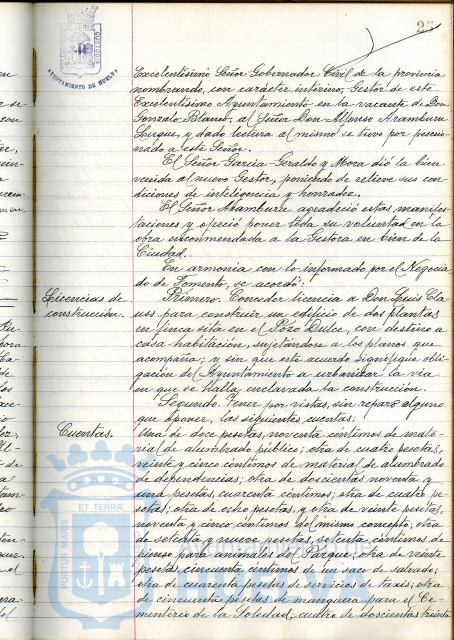 25
AYUNTAMIENTO DE HUELVA
Excelentísimo Señor Gobernador Civil de la provincia
nombrando, con carácter interino, Gestor de este
Excelentísimo Ayuntamiento en la vacante de Don
Gonzalo Blanco, al Señor Don Alfonso Aramburu
y dado lectura al mismo se tuvo por posesio-
nado a este Señor.
El Señor Garcia Geraldo y Mora dió la bien
venida al nuevo Gestor, poniendo de relieve sus con
diciones de inteligencia y honradez.
El Señor Aramburu agradeció estas manifes-
taciones y ofreció poner toda su voluntad en la
obra encomendada a la Gestora en bien de la
Ciudad.
En armonia con lo informado por el Negocia
do de Fomento, se acordó:
Licencias de
construcción.
Primero. Conceder licencia a Don Luis Cla
uss para construir un edificio de dos plantas
en finca sita en el Pozo Dulce, con destino a
casa habitación, sujetándose a los planos que
acompaña; y sin que este acuerdo signifique obli-
gación del Ayuntamiento a urbanizar la via
en que se halla enclavada la construcción.
Segundo. Tener por vistas, sin reparo alguno
que oponer, las siguientes cuentas:
Cuentas.
Una de doce pesetas, noventa centimos de mate-
rial de alumbrado público; otra de cuatro pesetas,
veinte y cinco centimos de material de alumbrado
de dependencias; otra de doscientas noventa y
una pesetas, cuarenta centimos; otra de cuatro pe-
setas; otra de ocho pesetas, y otra de veinte pesetas,
noventa y cinco centimos del mismo concepto; otra
de setenta y nueve pesetas, setenta centimos de
pienso para animales del Parque; otra de veinte
pesetas, cincuenta centimos de un saco de salvado;
otra de cuarenta pesetas de servicios de taxis; otra
de cincuenta pesetas de manguera para el Ce-
menterio de la Soledad, cuatro de doscientas treinta
PORTUS MARIS ET TERRAE